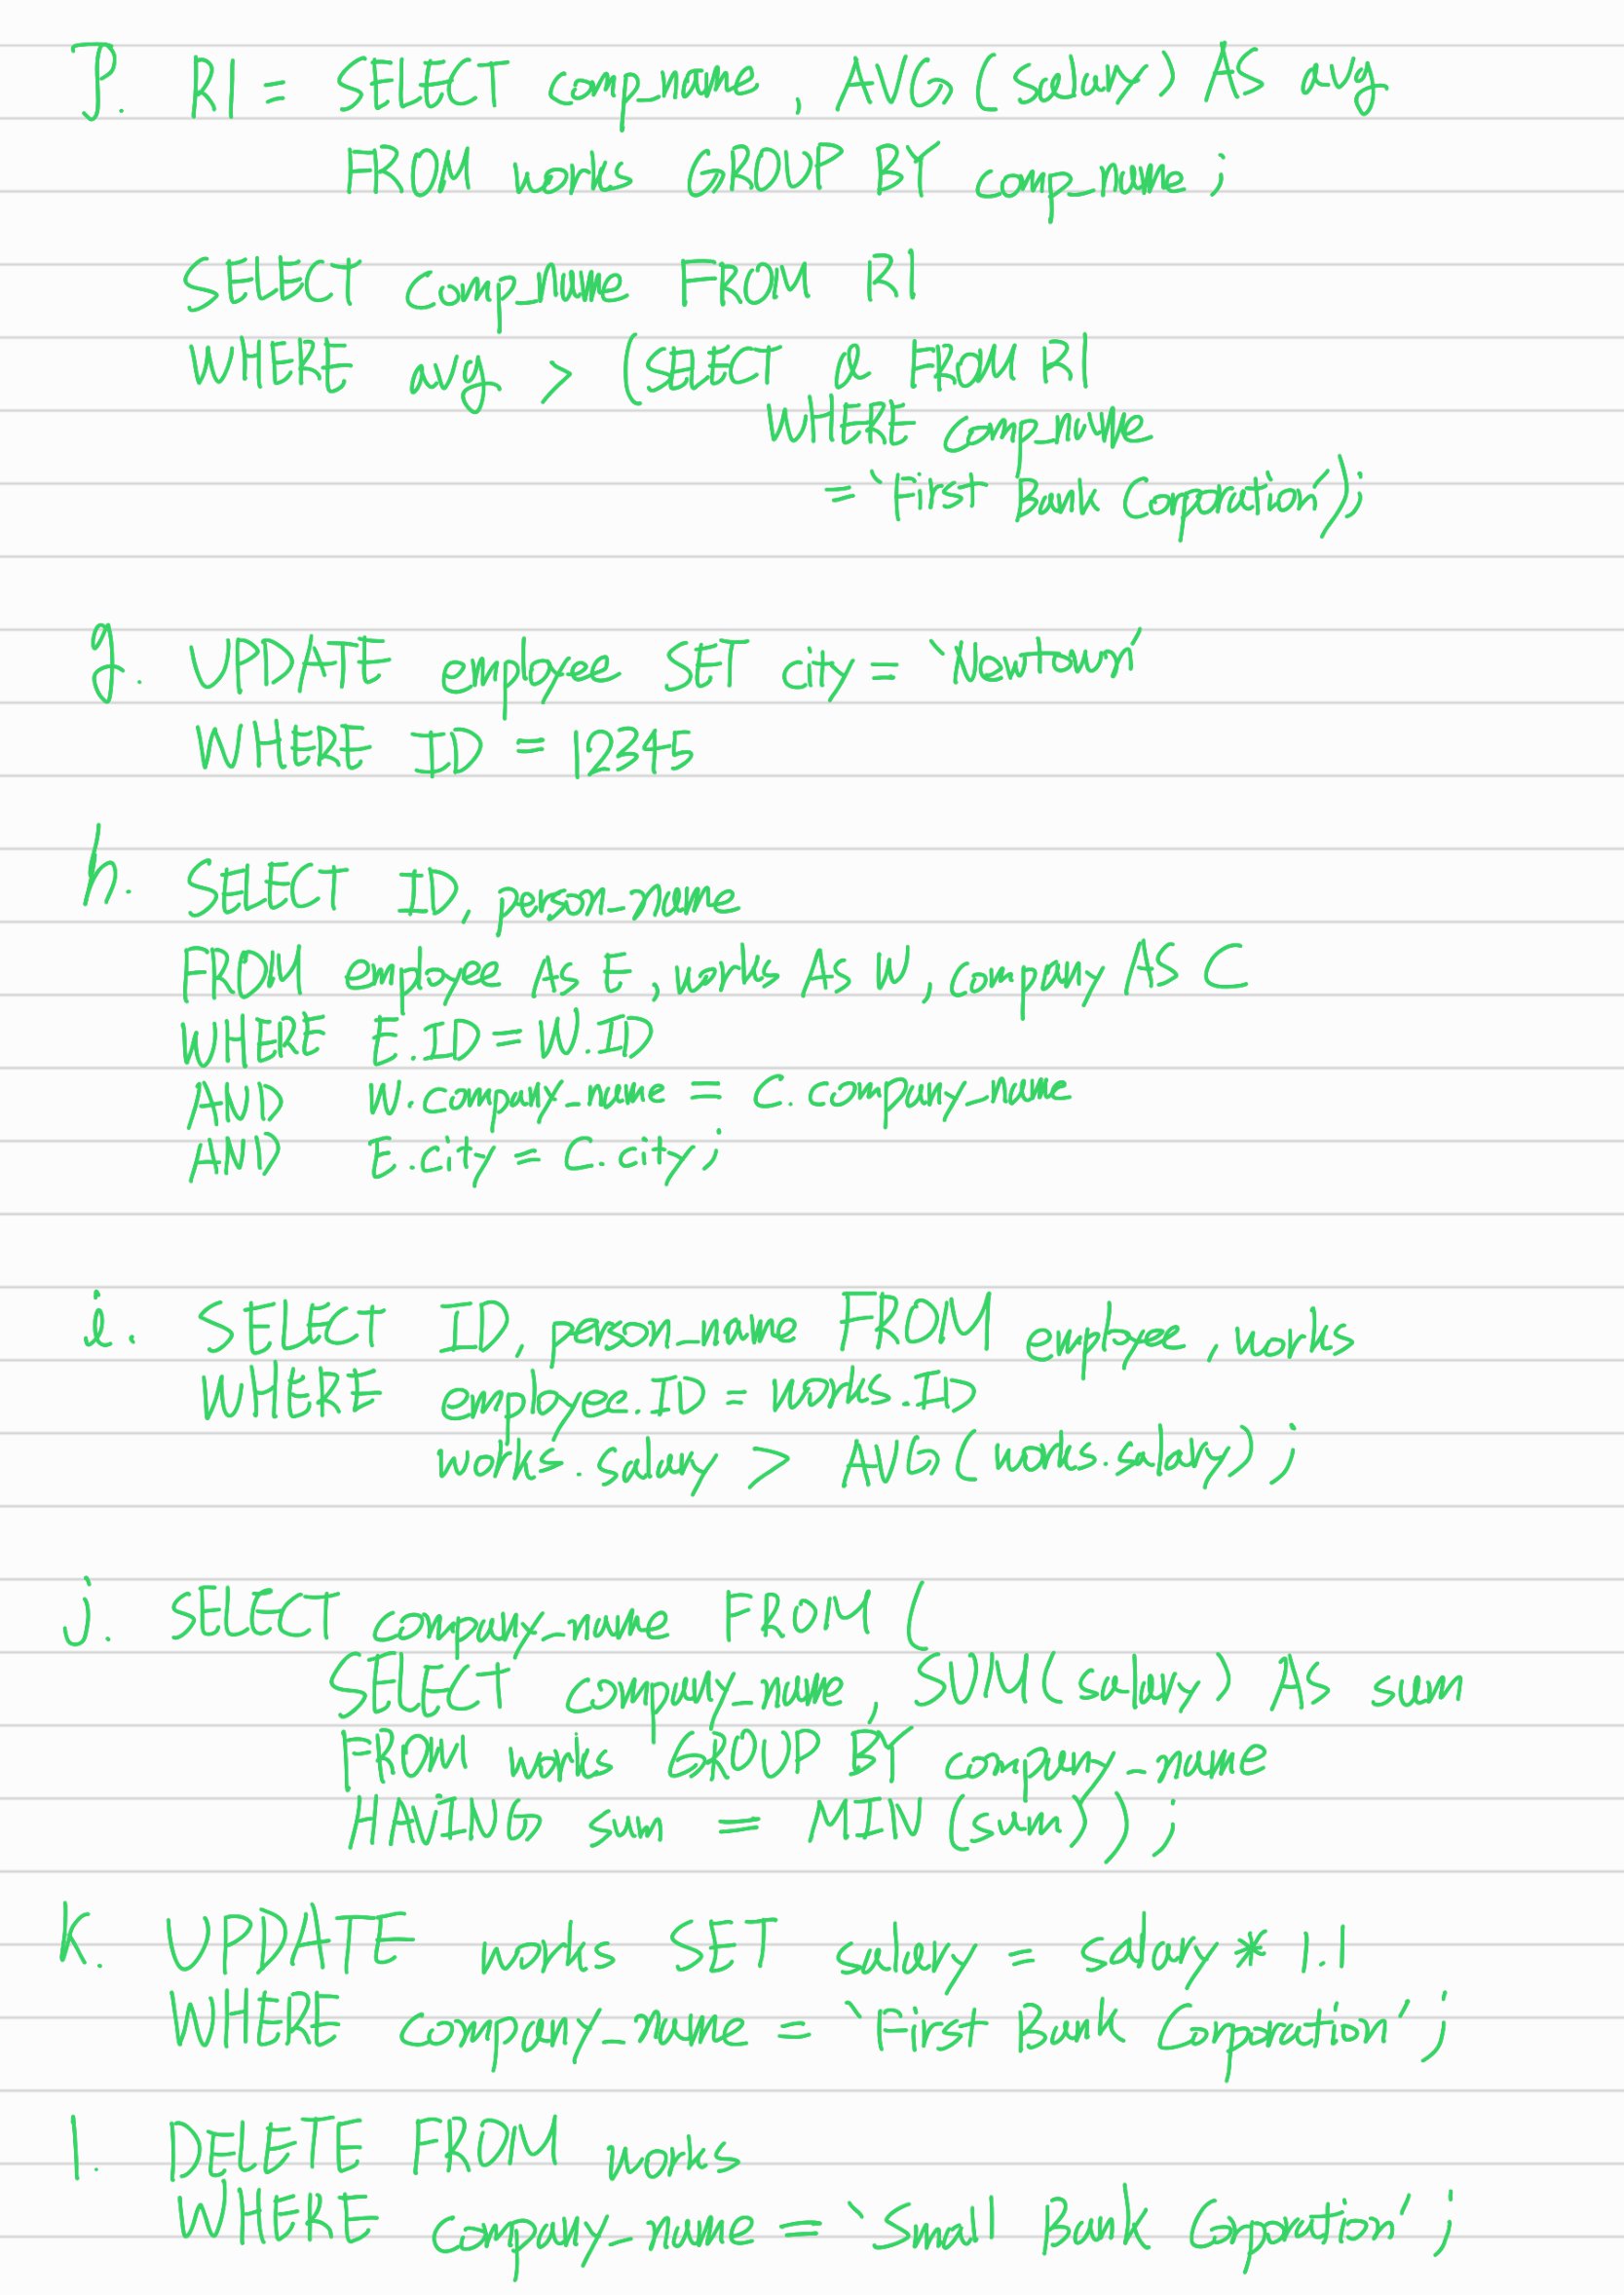 P. R1 = SELECT comp_name, AVG(salary) AS avg
FROM works GROUP BY comp_name;
SELECT comp_name FROM R1
WHERE avg > (SELECT a FROM R1
WHERE comp_name
= 'First Bank Corporation');
g. UPDATE employee SET city = 'Newtown'
WHERE ID = 12345
h. SELECT ID, person_name
FROM employee AS E, works AS W, company AS C
WHERE E.ID = W.ID
AND W.company_name = C.company_name
AND E.city = C.city;
i. SELECT ID, person_name FROM employee, works
WHERE employee.ID = works.ID
works.salary > AVG(works.salary);
j. SELECT company_name FROM (
SELECT company_name, SUM(salary) AS sum
FROM works GROUP BY company_name
HAVING sum = MIN(sum));
k. UPDATE works SET salary = salary * 1.1
WHERE company_name = 'First Bank Corporation';
l. DELETE FROM works
WHERE company_name = 'Small Bank Corporation';